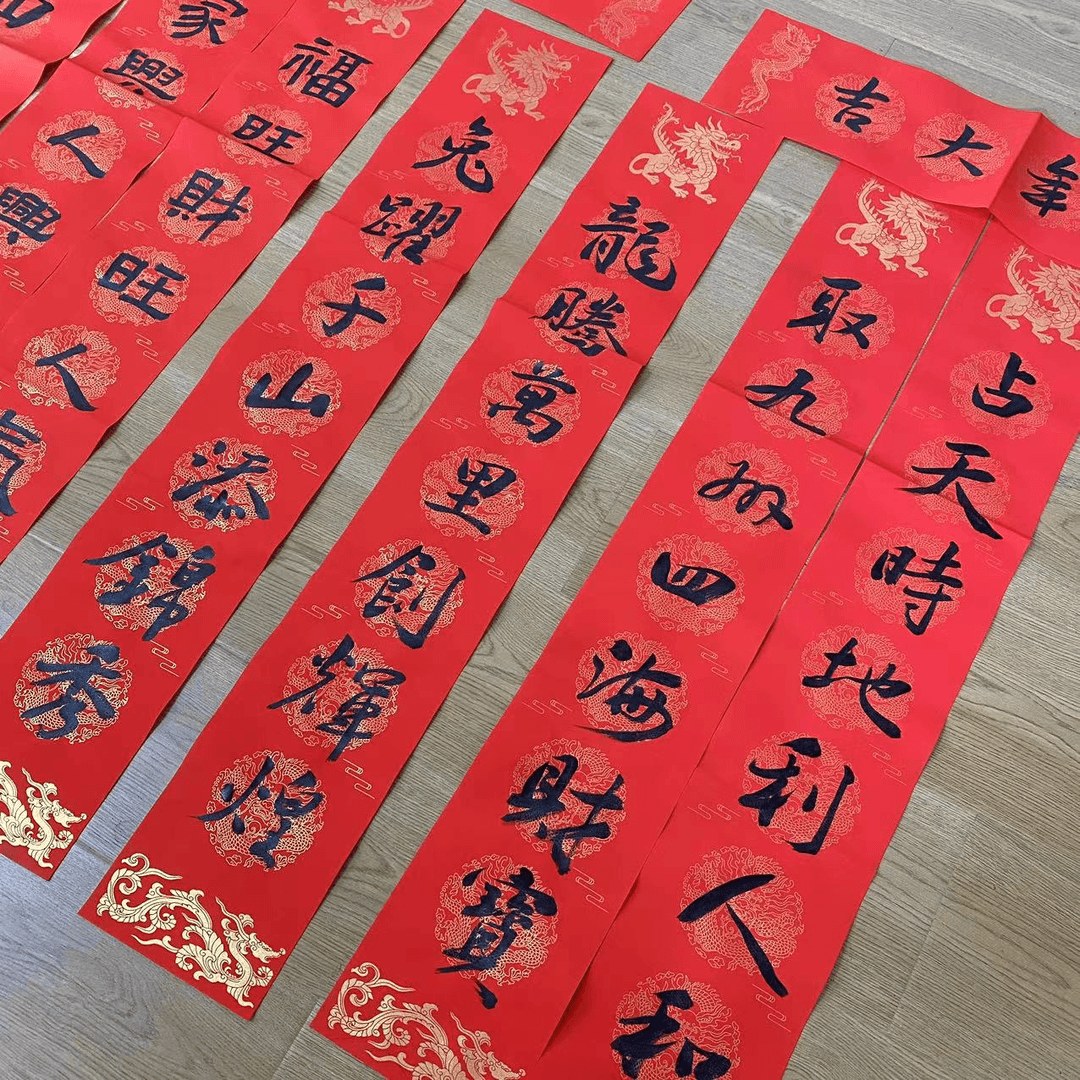 年大吉
占天時地利人和
取九州四海財寶
龍騰萬里創輝煌
兔躍千山添錦秀
福旺財旺人氣
家興人興